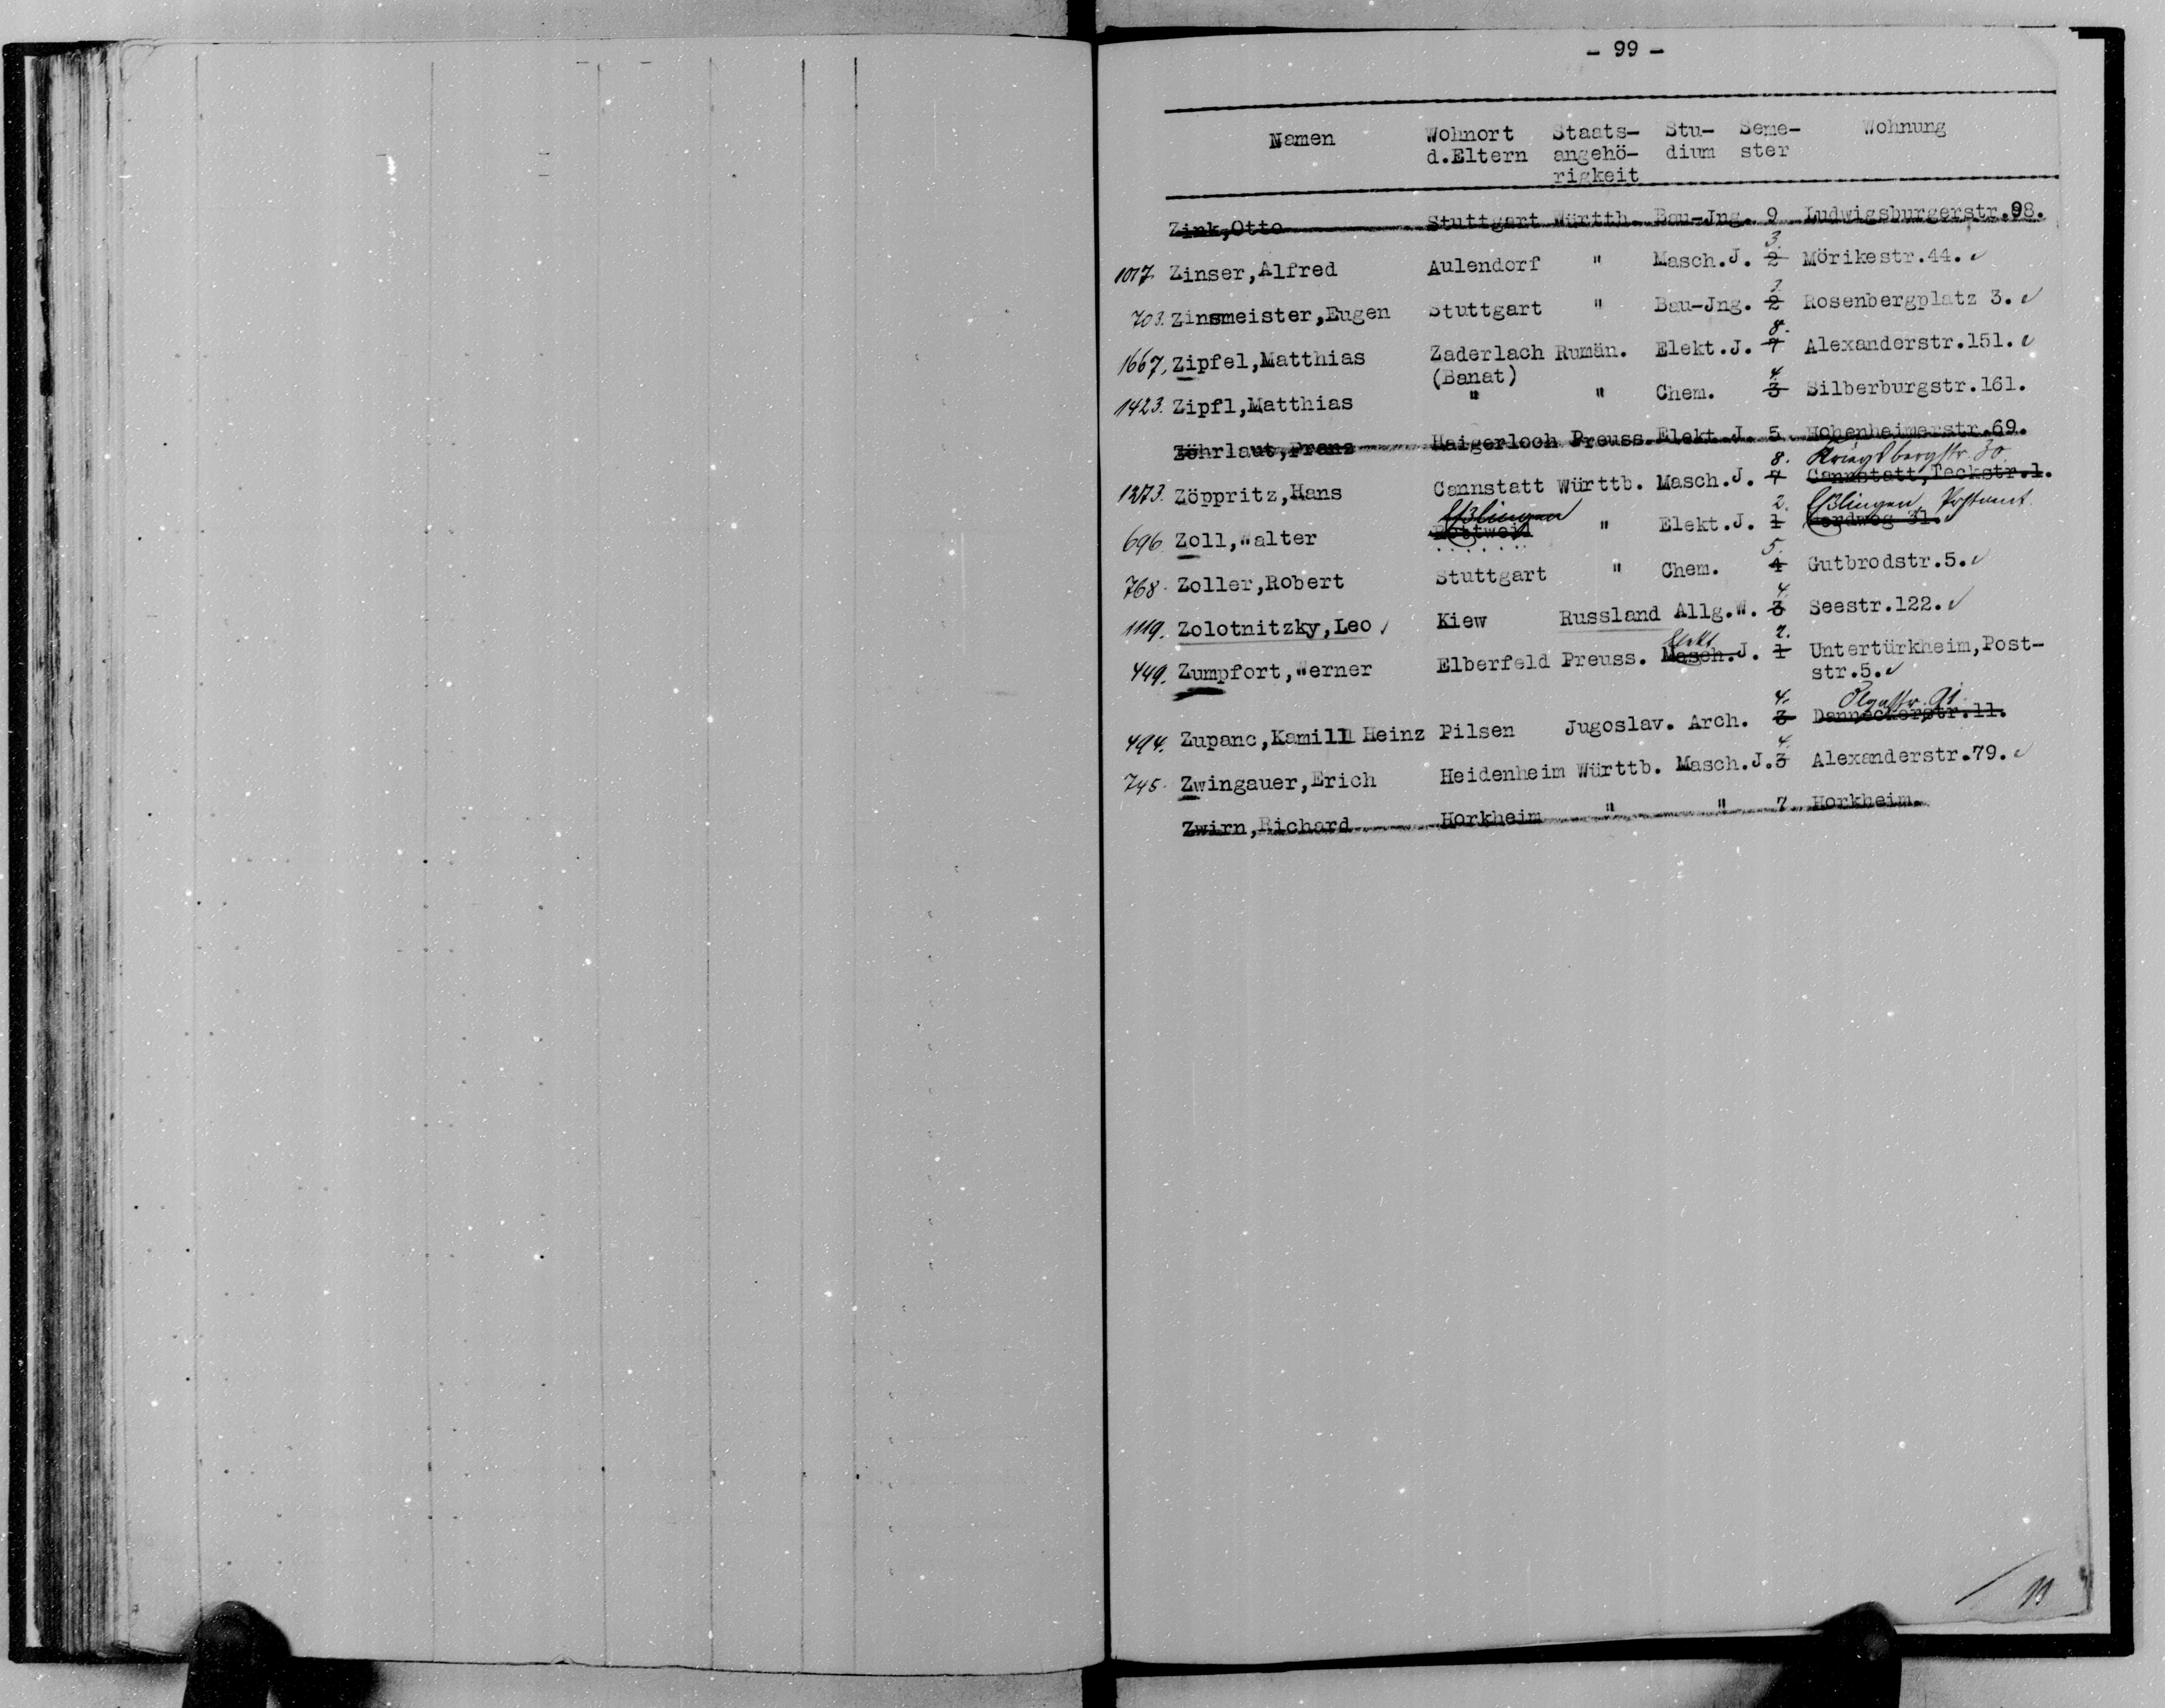 - 99 -
Namen Wohnort Staats- Stu- Seme- Wohnung
d.Eltern angehö- dium ster
rigkeit
Zink,Otto Stuttgart Württb. Bau-Jng. 9 Ludwigsburgerstr.98.
3.
1017. Zinser,Alfred Aulendorf " Masch.J. 2 Mörikestr.44.
3.
703. Zinsmeister,Eugen Stuttgart " Bau-Jng. 2 Rosenbergplatz 3.
8.
1667. Zipfel,Matthias Zaderlach Rumän. Elekt.J. 7 Alexanderstr.151.
(Banat)
4.
1423. Zipfl,Matthias " " Chem. 3 Silberburgstr.161.
Zöhrlaut,Franz Haigerloch Preuss. Elekt.J. 5 Hohenheimerstr.69.
8. Kriegsbergstr. 30.
1373. Zöppritz,Hans Cannstatt Württb. Masch.J. 7 Cannstatt,Teckstr.1.
Eßlingen 2. Eßlingen, Postamt
696. Zoll,Walter Rottweil " Elekt.J. 1 Nordweg 31.
5.
768. Zoller,Robert Stuttgart " Chem. 4 Gutbrodstr.5.
4.
1119. Zolotnitzky,Leo Kiew Russland Allg.W. 3 Seestr.122.
Elekt 2.
449. Zumpfort,Werner Elberfeld Preuss. Masch.J. 1 Untertürkheim,Post-
str.5.
4. Olgastr. 91.
494. Zupanc,Kamill Heinz Pilsen Jugoslav. Arch. 3 Danneckerstr.11.
4.
745. Zwingauer,Erich Heidenheim Württb. Masch.J. 3 Alexanderstr.79.
Zwirn,Richard Horkheim " " 7 Horkheim.
11